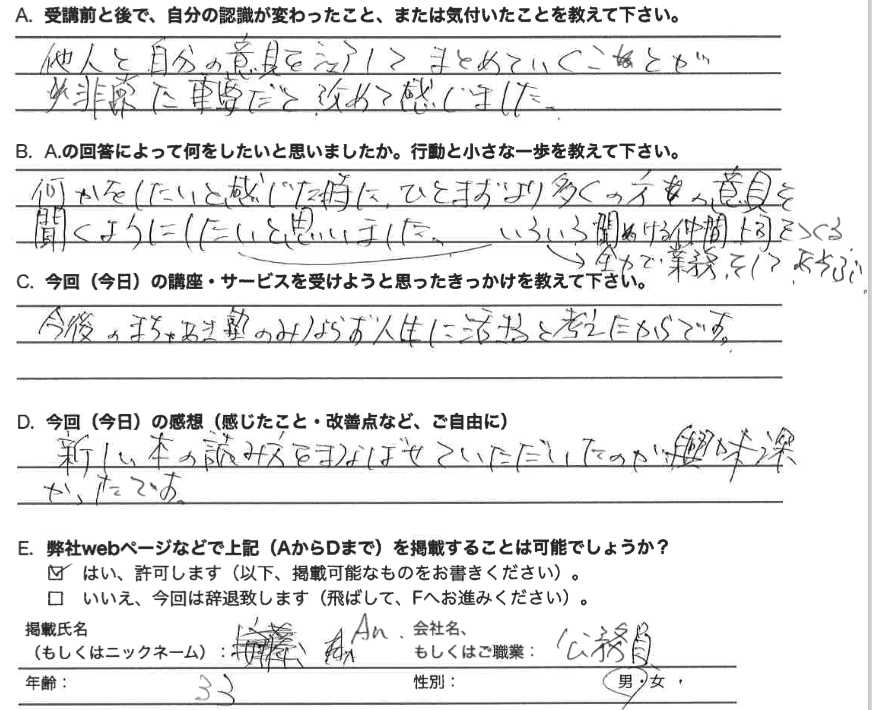 A. 受講前と後で、自分の認識が変わったこと、または気付いたことを教えて下さい。
他人と自分の意見を まとめていくことが
非常に重要だと改めて感じました。
B. A.の回答によって何をしたいと思いましたか。行動と小さな一歩を教えて下さい。
何かをしたいと感じた時に、ひとまずより多くの 意見を
聞くようにしたいと思いました。 いろいろ聞ける仲間 をつくる
→全力で業務、そして あそぶ。
C. 今回（今日）の講座・サービスを受けようと思ったきっかけを教えて下さい。
今後の 塾のみならず人生に活きると考えたからです。
D. 今回（今日）の感想（感じたこと・改善点など、ご自由に）
新しい本の読み方をまなばせていただいたのが興味深
かったです。
E. 弊社webページなどで上記（AからDまで）を掲載することは可能でしょうか？
☑ はい、許可します（以下、掲載可能なものをお書きください）。
☐ いいえ、今回は辞退致します（飛ばして、Fへお進みください）。
掲載氏名 An. 会社名、
（もしくはニックネーム）： もしくはご職業： 公務員
年齢： 33 性別： 男・女